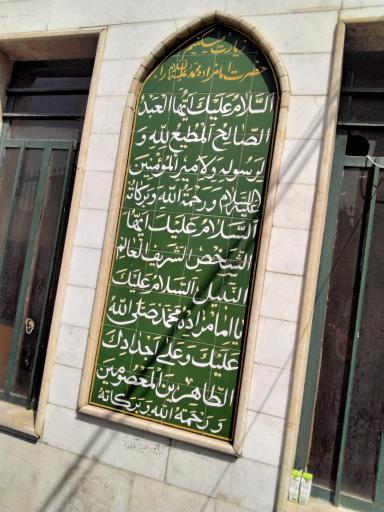 زیارت میکنیم
حضرت امامزاده محمد علیه السلام را
السَّلامُ عَلَیْکَ اَیُّهَا العَبْدُ
الصّالِحُ المُطیعُ لِلّهِ وَ
لِرَسُولِهِ وَ لِاَمیرِ المُؤْمِنینَ
عَلَیْهِ السَّلامُ وَ رَحْمَةُ اللهِ وَ بَرَکاتُهُ
اَلسَّلامُ عَلَیْکَ اَیُّهَا
الشَّخْصِ الشَّریفُ العالِمُ
النَّبیلُ السَّلامُ عَلَیْکَ
یا امامزاده محمّد صَلَّی اللهُ
عَلَیْکَ وَ عَلی اَجْدادِکَ
الطّاهِرینَ المَعْصُومینَ
وَ رَحْمَةُ اللهِ وَ بَرَکاتُهُ